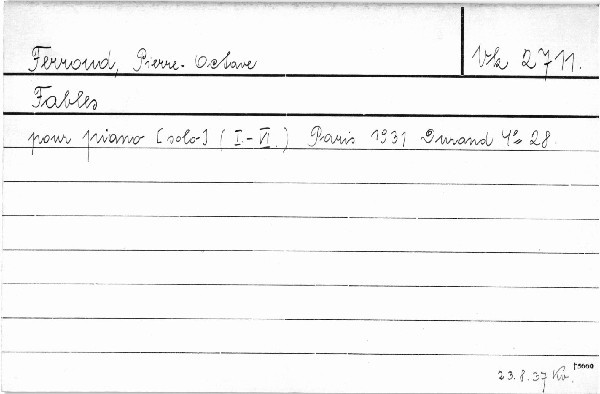 Ferroud, Pierre-Octave
Vh 2711.
Fables
pour piano [solo] (I.-VI.) Paris 1931 Durand 4° 28.
23.8.37 Kv.
†5000